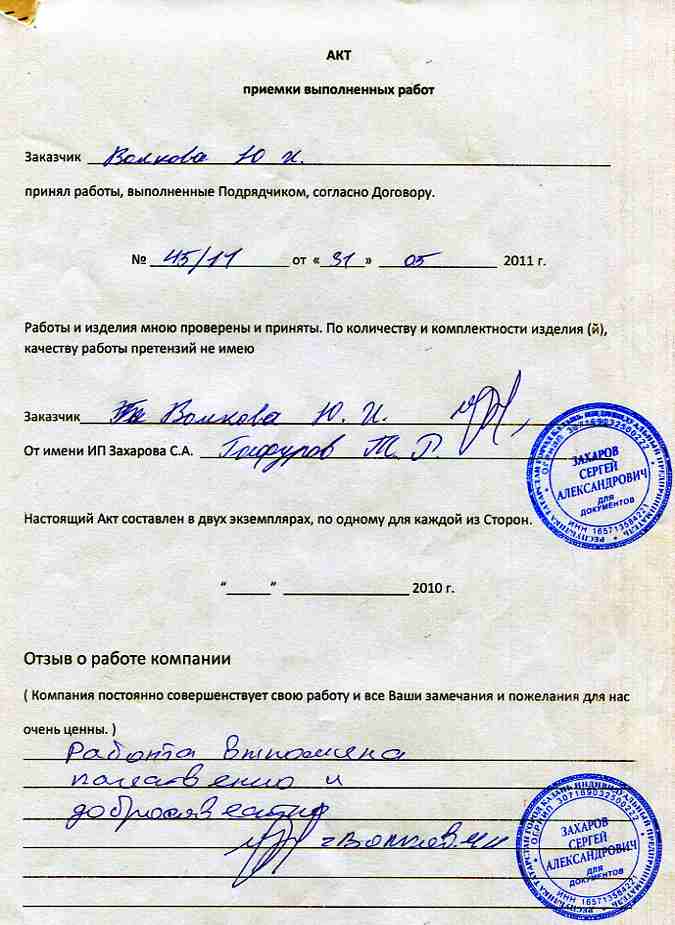 АКТ
приемки выполненных работ
Заказчик Волкова Ю И.
принял работы, выполненные Подрядчиком, согласно Договору.
№ 45/11 от «31» 05 2011 г.
Работы и изделия мною проверены и приняты. По количеству и комплектности изделия (й),
качеству работы претензий не имею
Заказчик Волкова Ю. И.
От имени ИП Захарова С.А. Гафуров Т. Р.
ЗАХАРОВ
СЕРГЕЙ
АЛЕКСАНДРОВИЧ
ДЛЯ
ДОКУМЕНТОВ
Настоящий Акт составлен в двух экземплярах, по одному для каждой из Сторон.
“______” ________________ 2010 г.
Отзыв о работе компании
( Компания постоянно совершенствует свою работу и все Ваши замечания и пожелания для нас
очень ценны. )
Работа выполнена
качественно и
добросовестно
ЗАХАРОВ
СЕРГЕЙ
АЛЕКСАНДРОВИЧ
ДЛЯ
ДОКУМЕНТОВ